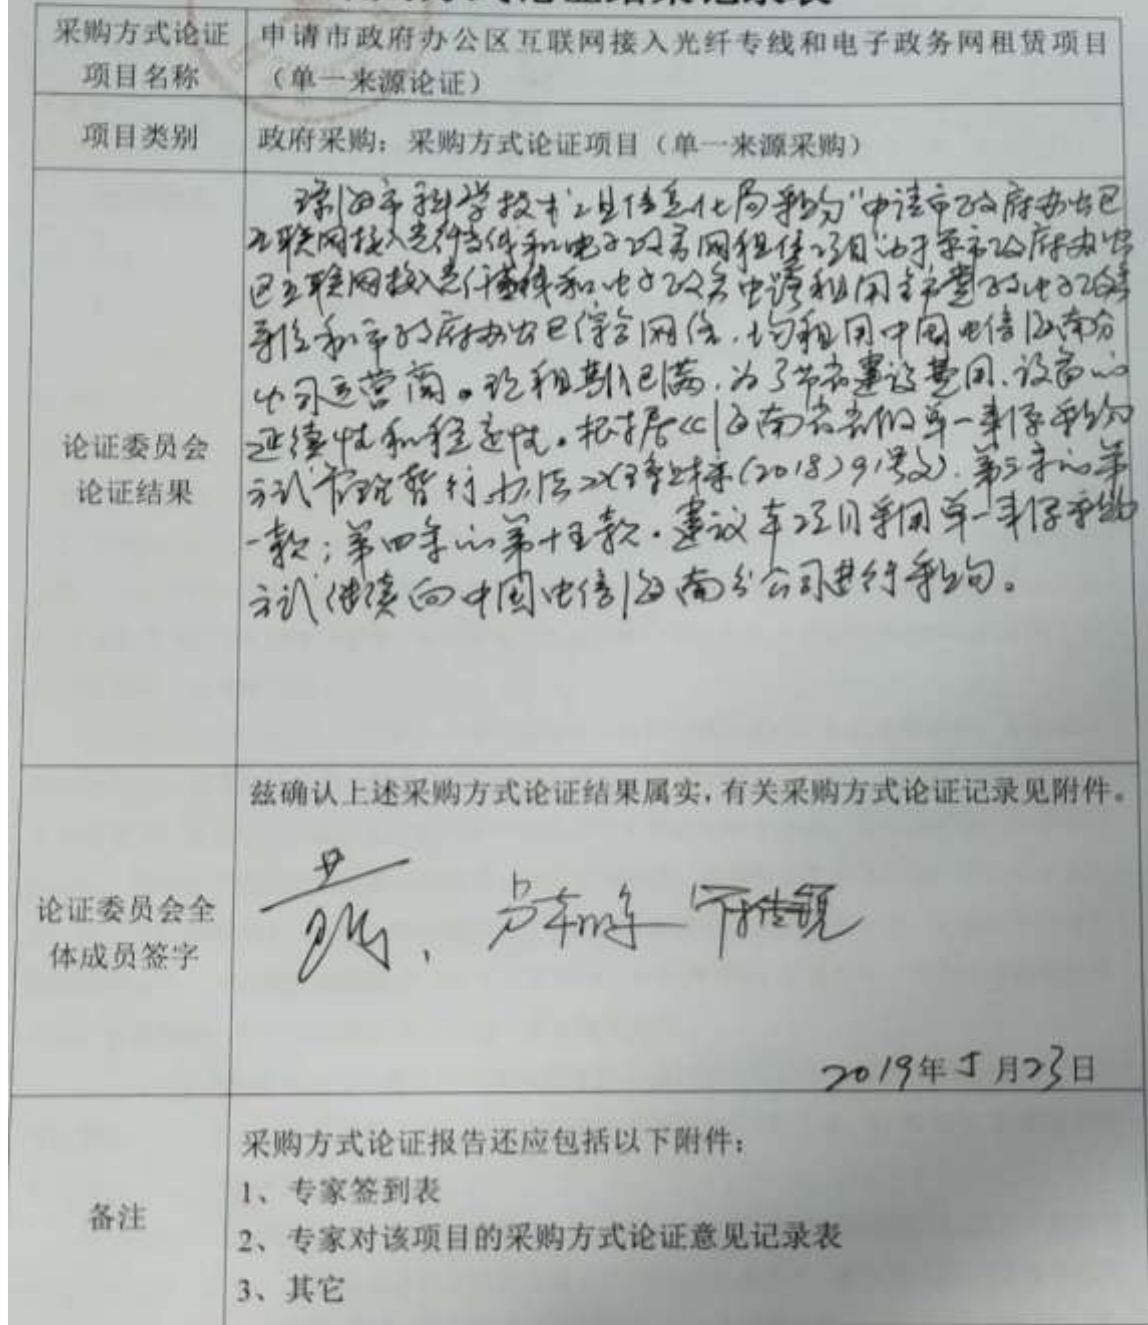 采购方式论证
项目名称
申请市政府办公区互联网接入光纤专线和电子政务网租赁项目
（单一来源论证）
项目类别
政府采购：采购方式论证项目（单一来源采购）
论证委员会
论证结果
琼海市科学技术工业信息化局采购“申请市政府办公区
互联网接入光纤专线和电子政务网租赁项目”由于原市政府办公
区互联网接入光纤专线和电子政务
和市政府办公区综合网络，均租用中国电信海南分
公司运营商。现租期已满，为了节省建设费用、设备的
延续性和稳定性。根据《海南省省级单一来源采购
方式管理暂行办法》（2018）91号文）第三条的第
一款；第四条的第十五款。建议本项目采用单一来源采购
方式继续向中国电信海南分公司进行采购。
论证委员会全
体成员签字
兹确认上述采购方式论证结果属实，有关采购方式论证记录见附件。
2019年5月23日
备注
采购方式论证报告还应包括以下附件：
1、专家签到表
2、专家对该项目的采购方式论证意见记录表
3、其它